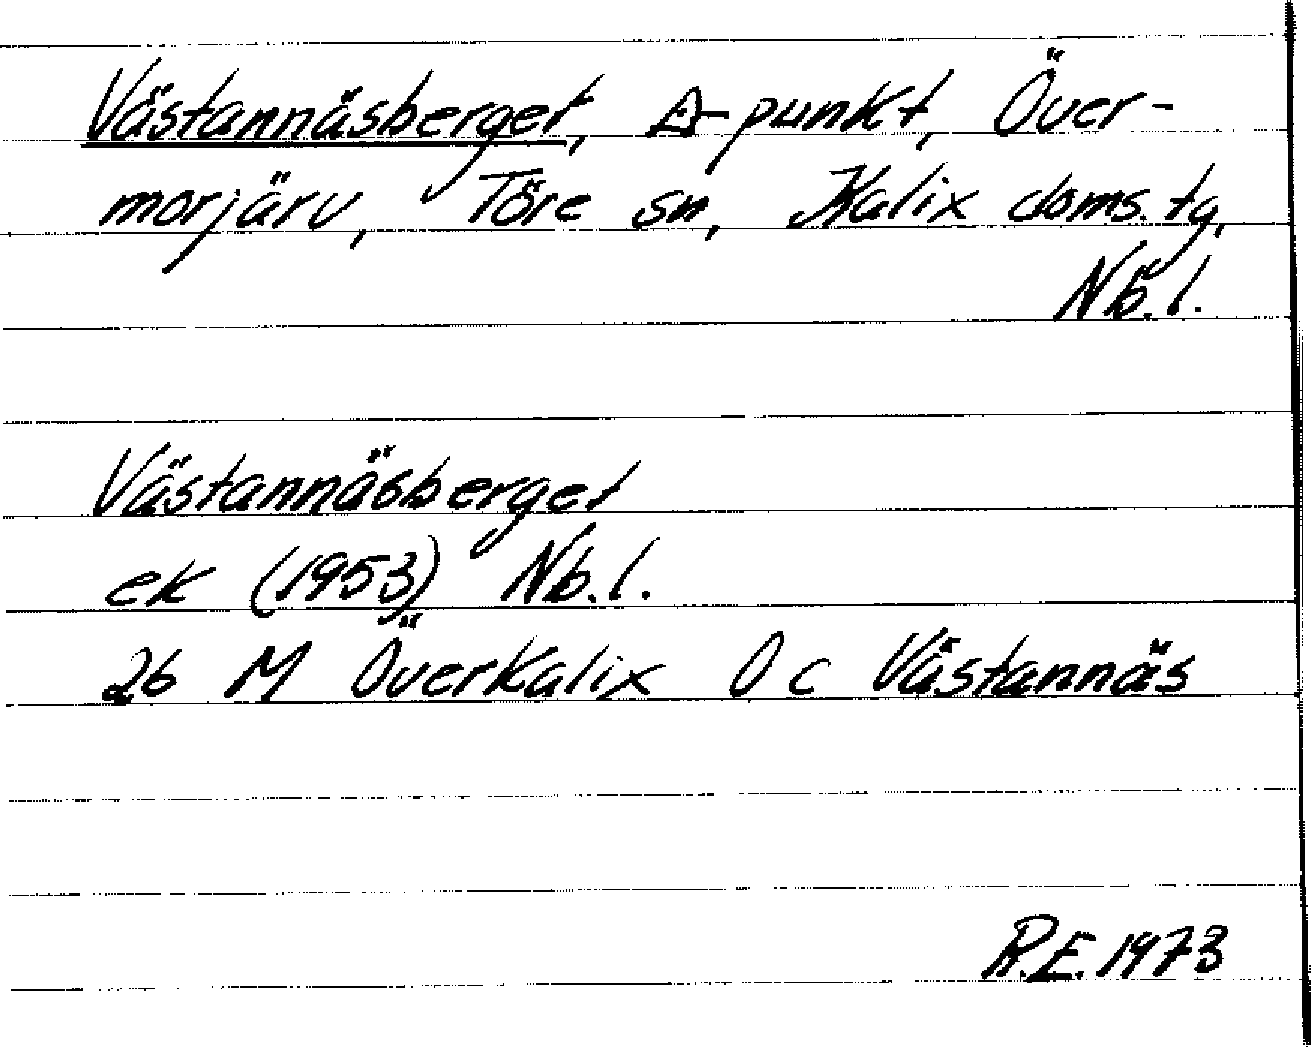 Västannäsberget, △-punkt, Över-
morjärv, Töre sn, Kalix doms. tg,
Nb. l.
Västannäsberget
ek (1953) Nb. l.
26 M Överkalix 0 c Västannäs
R.E. 1973